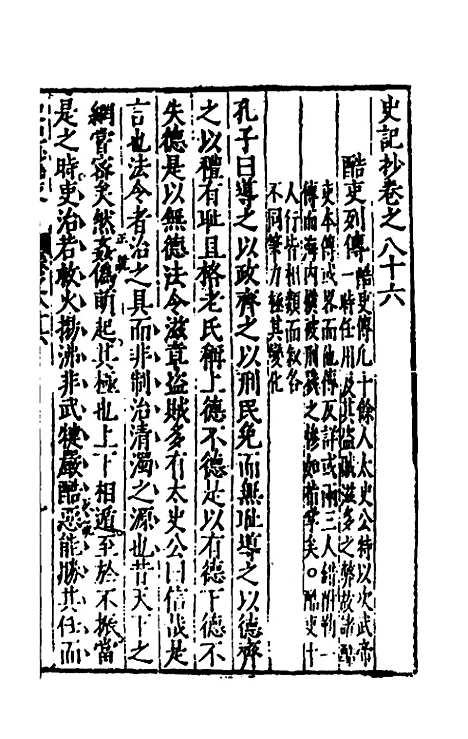 史記抄卷之八十六
酷吏列傳酷吏傳凡十餘人太史公特以次武帝
一時任用及其盜賊滋多之弊故諸酷
吏本傳或畧而他傳反詳或兩三人錯附到一
傳而海内橫被刑戮之慘如指掌矣。酷吏十
人行皆相類而叙各
不同筆力極其變化
孔子曰導之以政齊之以刑民免而無耻導之以德齊
之以禮有耻且格老氏稱上德不德是以有德下德不
失德是以無德法令滋章盜賊多有太史公曰信哉是
言也法令者治之具而非制治清濁之源也昔天下之
網嘗密矣然姦僞萌起其極也上下相遁至於不振當
是之時吏治若救火揚沸非武健嚴酷惡能勝其任而